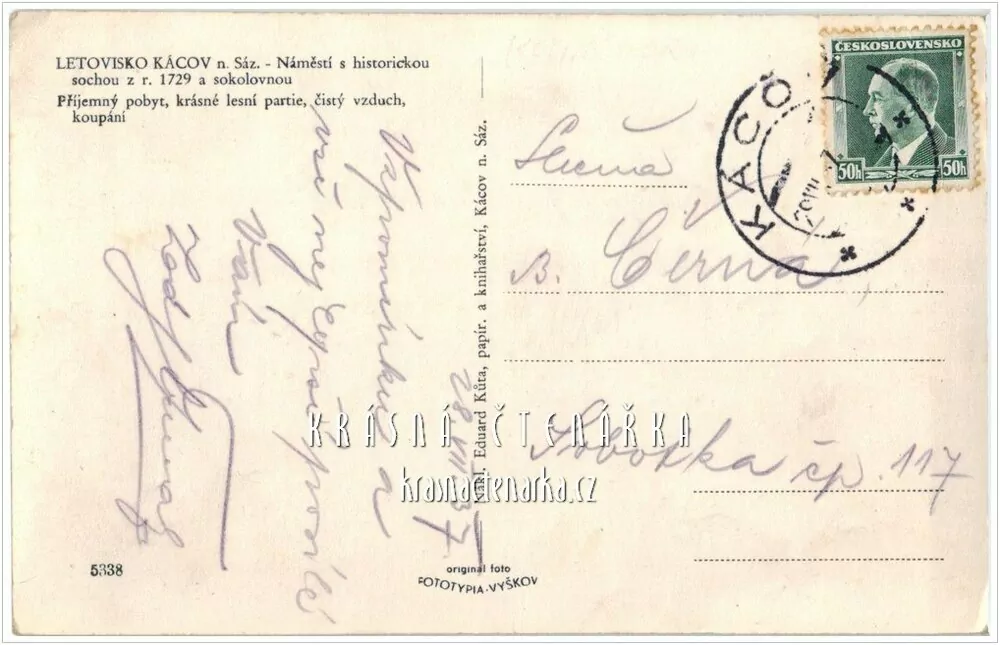 LETOVISKO KÁCOV n. Sáz. - Náměstí s historickou
sochou z r. 1729 a sokolovnou
Příjemný pobyt, krásné lesní partie, čistý vzduch,
koupání
ČESKOSLOVENSKO
50h 50h
KÁCOV
Slečna
B. Černá
Sobotka čp. 117
28. VII. 37
Vzpomínku a
Vám
Nákl. Eduard Kůta, papír. a knihařství, Kácov n. Sáz.
KRÁSNÁ ČTENÁŘKA
krasnactenarka.cz
5338
original foto
FOTOTYPIA-VYŠKOV